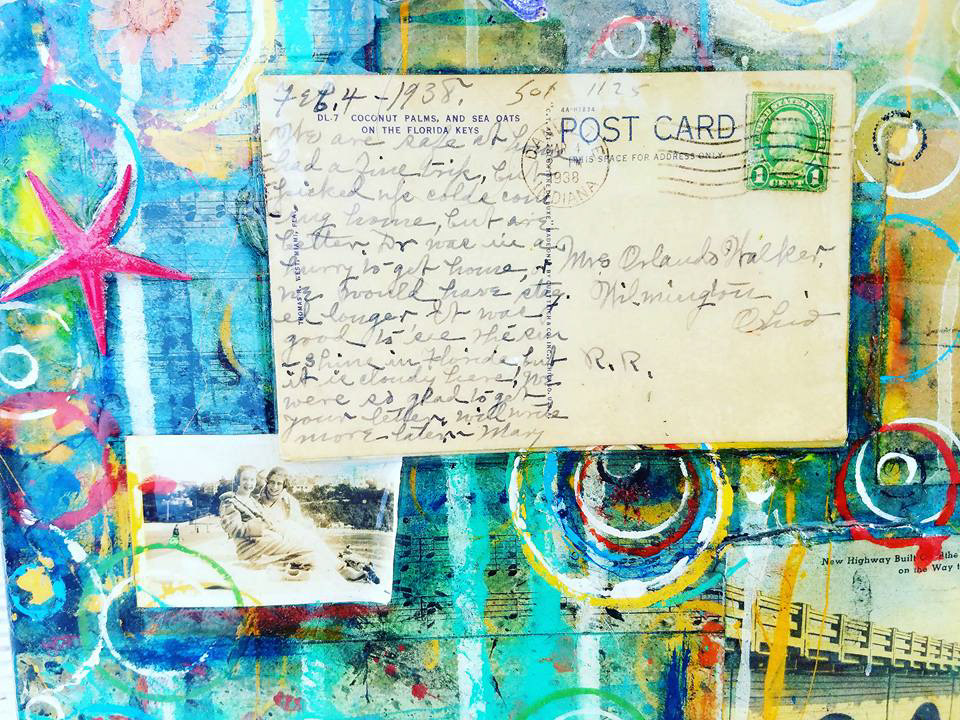 Feb. 4 - 1938.
1125
DL-7 COCONUT PALMS, AND SEA OATS
ON THE FLORIDA KEYS
4A-H1834
POST CARD
THIS SPACE FOR ADDRESS ONLY
UNITED STATES POSTAGE
1 CENT 1
1938
INDIANA
We are safe at home
had a fine trip, but
picked up colds com
ing home, but are
better. Dr was in a
hurry to get home, or
we would have stay
ed longer it was
good to see the sun
shine in Florida, but
it is cloudy here, we
were so glad to get
your letter, will write
more later. Mary
Mrs Orlando Walker.
Wilmington
Ohio
R.R.
New Highway Built the
on the Way t